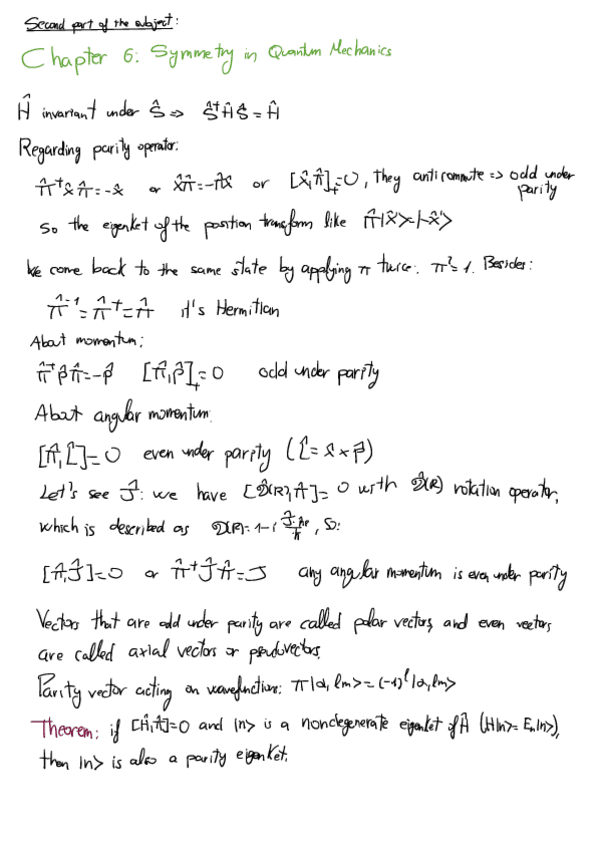 Second part of the subject:
Chapter 6: Symmetry in Quantum Mechanics
Ĥ invariant under Ŝ ⇒ Ŝ⁺ĤŜ = Ĥ
Regarding parity operator:
π̂⁺x̂π̂ = -x̂ or x̂π̂ = -π̂x̂ or [x̂,π̂]₊ = 0, they anticommute ⇒ odd under parity
So the eigenket of the position transform like π̂|x̂'> = |-x̂'>
We come back to the same state by applying π twice: π² = 1. Besides:
π̂⁻¹ = π̂⁺ = π̂ it's Hermitian
About momentum:
π̂⁺p̂π̂ = -p̂ [π̂,p̂]₊ = 0 odd under parity
About angular momentum:
[π̂,L̂] = 0 even under parity (L̂ = x̂ × p̂)
Let's see Ĵ: we have [𝒟̂(R),π̂] = 0 with 𝒟̂(R) rotation operator,
which is described as 𝒟(R) = 1 - i, so:
[π̂,Ĵ] = 0 or π̂⁺Ĵπ̂ = J any angular momentum is even under parity
Vectors that are odd under parity are called polar vectors, and even vectors
are called axial vectors or pseudovectors.
Parity vector acting on wavefunctions: π|α, lm> = (-1)ˡ|α, lm>
Theorem: if [Ĥ,π̂] = 0 and |n> is a nondegenerate eigenket of Ĥ (H|n> = Eₙ|n>),
then |n> is also a parity eigenket.